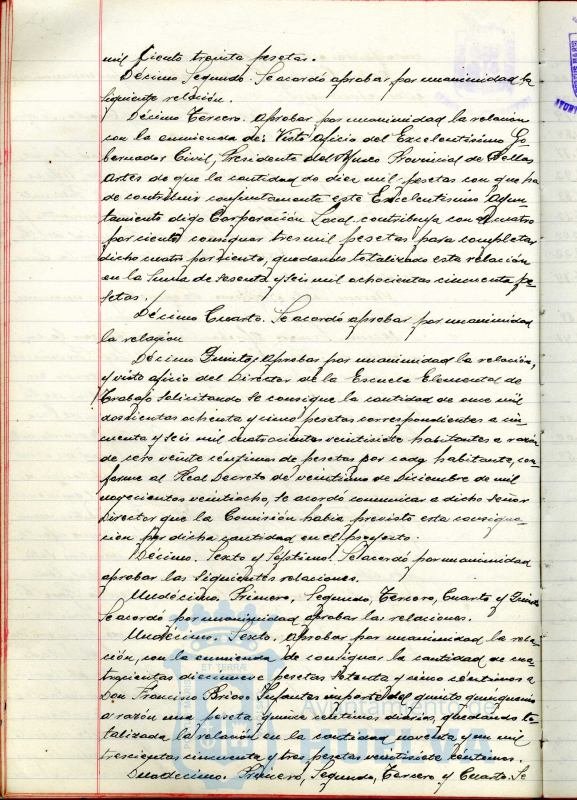 mil ciento treinta pesetas.
Décimo Segundo. Se acordó aprobar por unanimidad la
siguiente relación.
Décimo Tercero. Aprobar por unanimidad la relación
con la enmienda de: Visto oficio del Excelentísimo Go-
bernador Civil, Presidente del Museo Provincial de Bellas
Artes de que la cantidad de diez mil pesetas con que ha
de contribuir conjuntamente este Excelentísimo Ayun-
tamiento digo Corporación Local contribuya con el cuatro
por ciento consignar tres mil pesetas para completar
dicho cuatro por ciento, quedando totalizada esta relación
en la suma de sesenta y seis mil ochocientas cincuenta pe-
setas.
Décimo Cuarto. Se acordó aprobar por unanimidad
la relación
Décimo Quinto: Aprobar por unanimidad la relación,
y visto oficio del Director de la Escuela Elemental de
Trabajo solicitando se consigne la cantidad de once mil
doscientas ochenta y cinco pesetas correspondientes a cin
cuenta y seis mil cuatrocientos veintisiete habitantes a razón
de cero veinte céntimos de pesetas por cada habitante, con-
forme al Real Decreto de veintiuno de Diciembre de mil
novecientos veintiocho, se acordó comunicar a dicho señor
Director que la Comisión había previsto esta consigna-
cion por dicha cantidad en el proyecto.
Décimo. Sexto y Séptimo. Se acordó por unanimidad
aprobar las siguientes relaciones.
Undécimo. Primero, Segundo, Tercero, Cuarto y Quinto
Se acordó por unanimidad aprobar las relaciones.
Undécimo. Sexto. Aprobar por unanimidad la rela-
ción, con la enmienda de consignar la cantidad de cua-
trocientas diecinueve pesetas setenta y cinco céntimos a
Don Francisco Brioso Infantes importe del quinto quinquenio
a razón una peseta quince céntimos diarios, quedando to-
talizada la relación en la cantidad noventa y un mil
trescientas cincuenta y tres pesetas veintisiete céntimos.
Duodécimo. Primero, Segundo, Tercero y Cuarto. Se
Ayuntamiento de
HUELVA